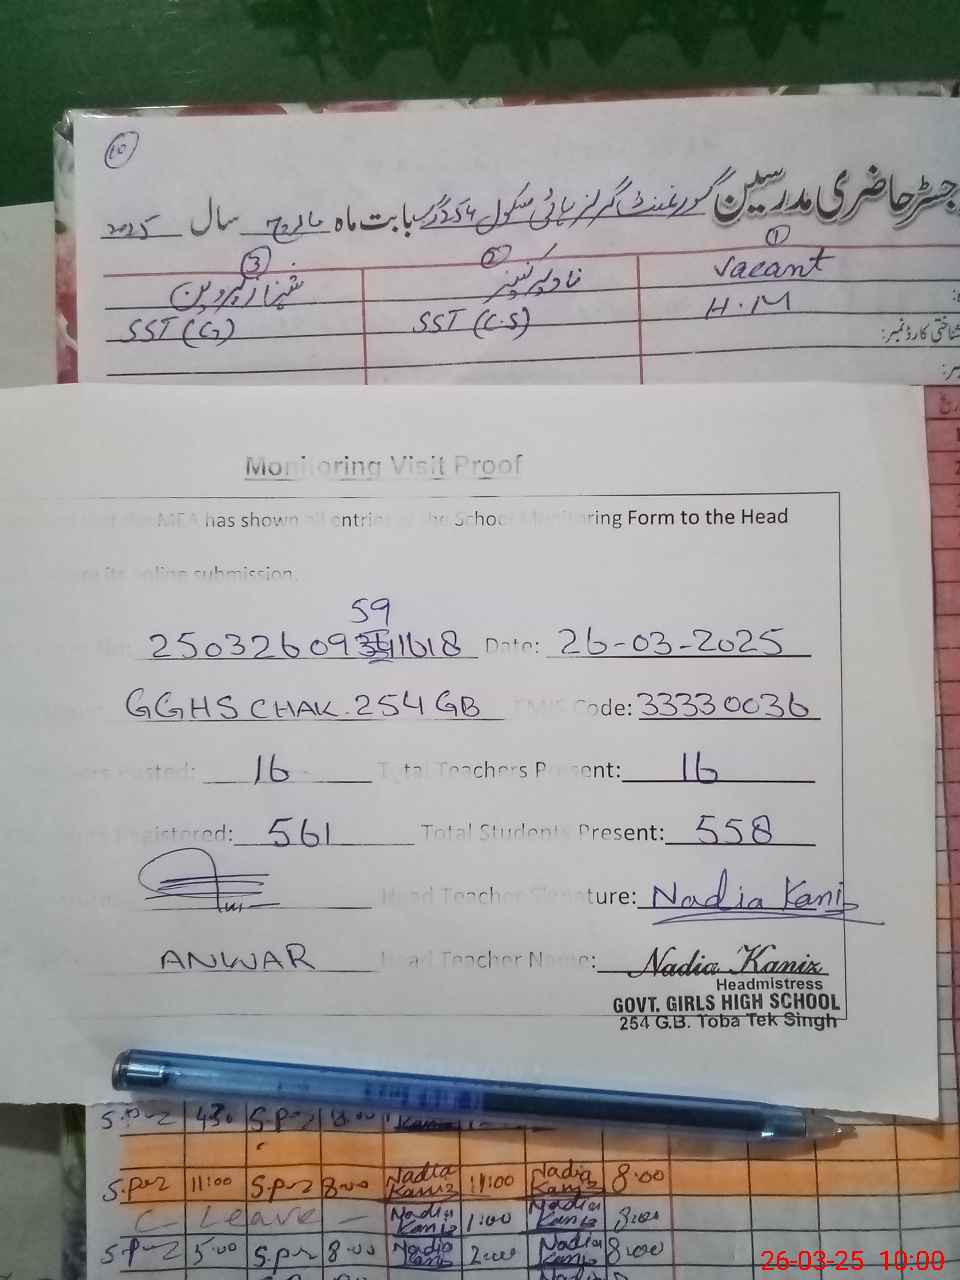 10
رجسٹر حاضری مدرسین گورنمنٹ گرلز ہائی سکول 254 گ ب بابت ماہ مارچ سال 2025
① ② ③
Vacant نادیہ کنیز شہناز پروین
H.M SST (C.S) SST (G)
شناختی کارڈ نمبر:
Monitoring Visit Proof
that the MEA has shown all entries of the School Monitoring Form to the Head
its online submission.
59
25032609 11618 Date: 26-03-2025
GGHS CHAK. 254 GB EMIS Code: 33330036
Posted: 16 Total Teachers Present: 16
Registered: 561 Total Students Present: 558
Head Teacher Signature: Nadia Kaniz
ANWAR Head Teacher Name: Nadia Kaniz
Headmistress
GOVT. GIRLS HIGH SCHOOL
254 G.B. Toba Tek Singh
11:00 8:00 Nadia Kaniz 11:00 Nadia Kaniz 8:00
C- Leave - Nadia Kaniz 1:00 Nadia Kaniz 8:00
5:00 8:00 Nadia Kaniz 2:00 Nadia 8:00
26-03-25 10:00